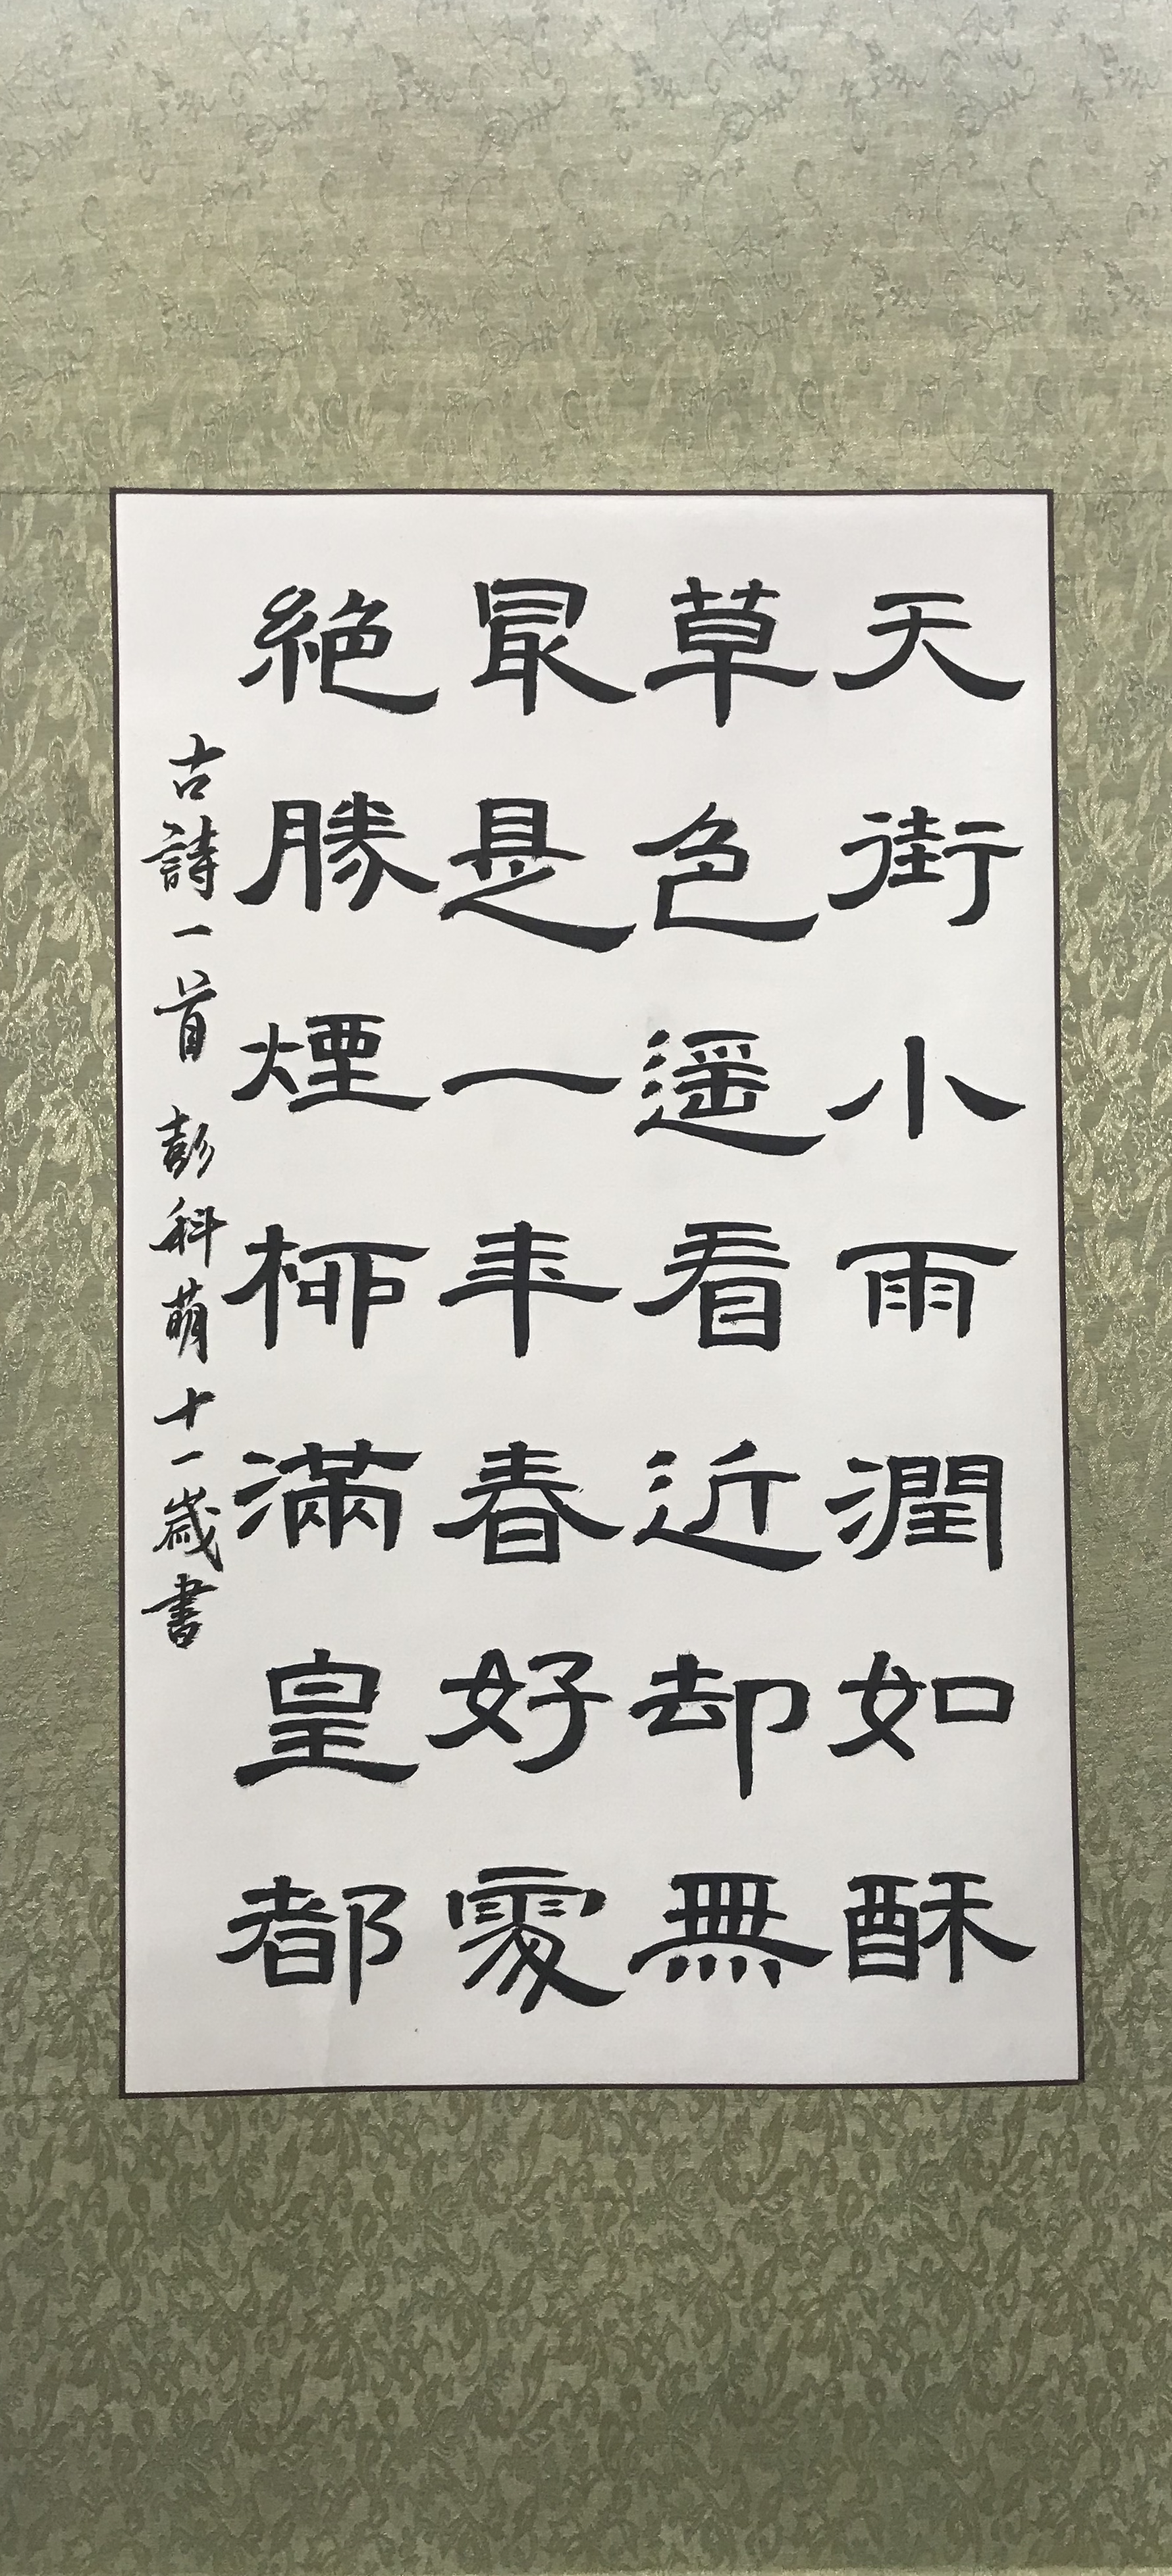 天街小雨潤如酥
草色遥看近却無
最是一年春好處
絶勝煙柳滿皇都
古詩一首 彭科萌十一歲書